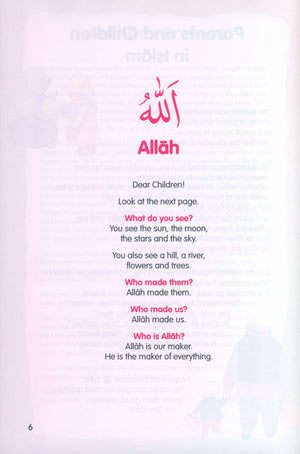 اَللّٰهُ
Allāh
Dear Children!
Look at the next page.
What do you see?
You see the sun, the moon,
the stars and the sky.
You also see a hill, a river,
flowers and trees.
Who made them?
Allāh made them.
Who made us?
Allāh made us.
Who is Allāh?
Allāh is our maker.
He is the maker of everything.
6